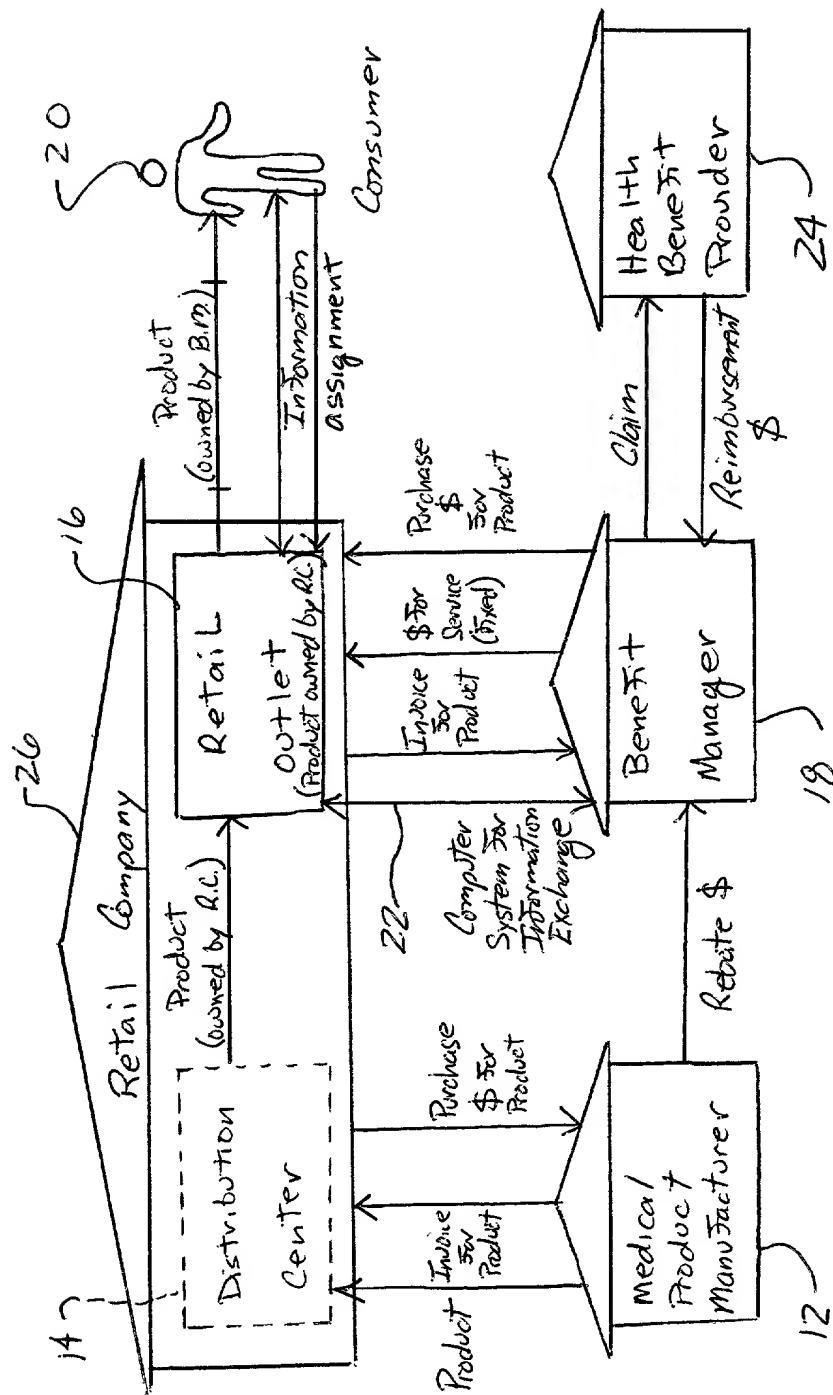 26
Retail Company
14
Distribution
Center
Product
(owned by R.C.)
16
Retail
Outlet
(Product owned by R.C.)
Product
(owned by B.M.)
Information
assignment
20
Consumer
Product
Invoice
For
Product
Purchase
$ For
Product
22
Computer
System For
Information
Exchange
Invoice
For
Product
$ For
Service
(Fixed)
Purchase
$
For
Product
Medical
Product
Manufacturer
12
Rebate $
Benefit
Manager
18
Claim
Reimbursement
$
Health
Benefit
Provider
24